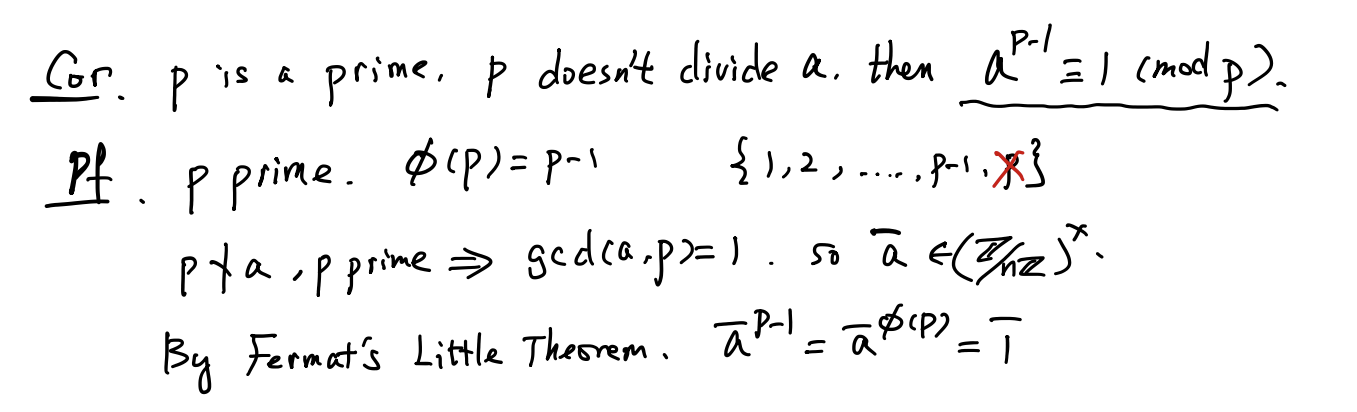 Cor. p is a prime. p doesn't divide a. then a^{p-1} ≡ 1 (mod p).
Pf. p prime. ϕ(p) = p-1 {1, 2, ...., p-1, p}
p ∤ a, p prime ⇒ gcd(a,p)=1. so \overline{a} ∈ (ℤ/nℤ)^×.
By Fermat's Little Theorem. \overline{a}^{p-1} = \overline{a}^{ϕ(p)} = \overline{1}